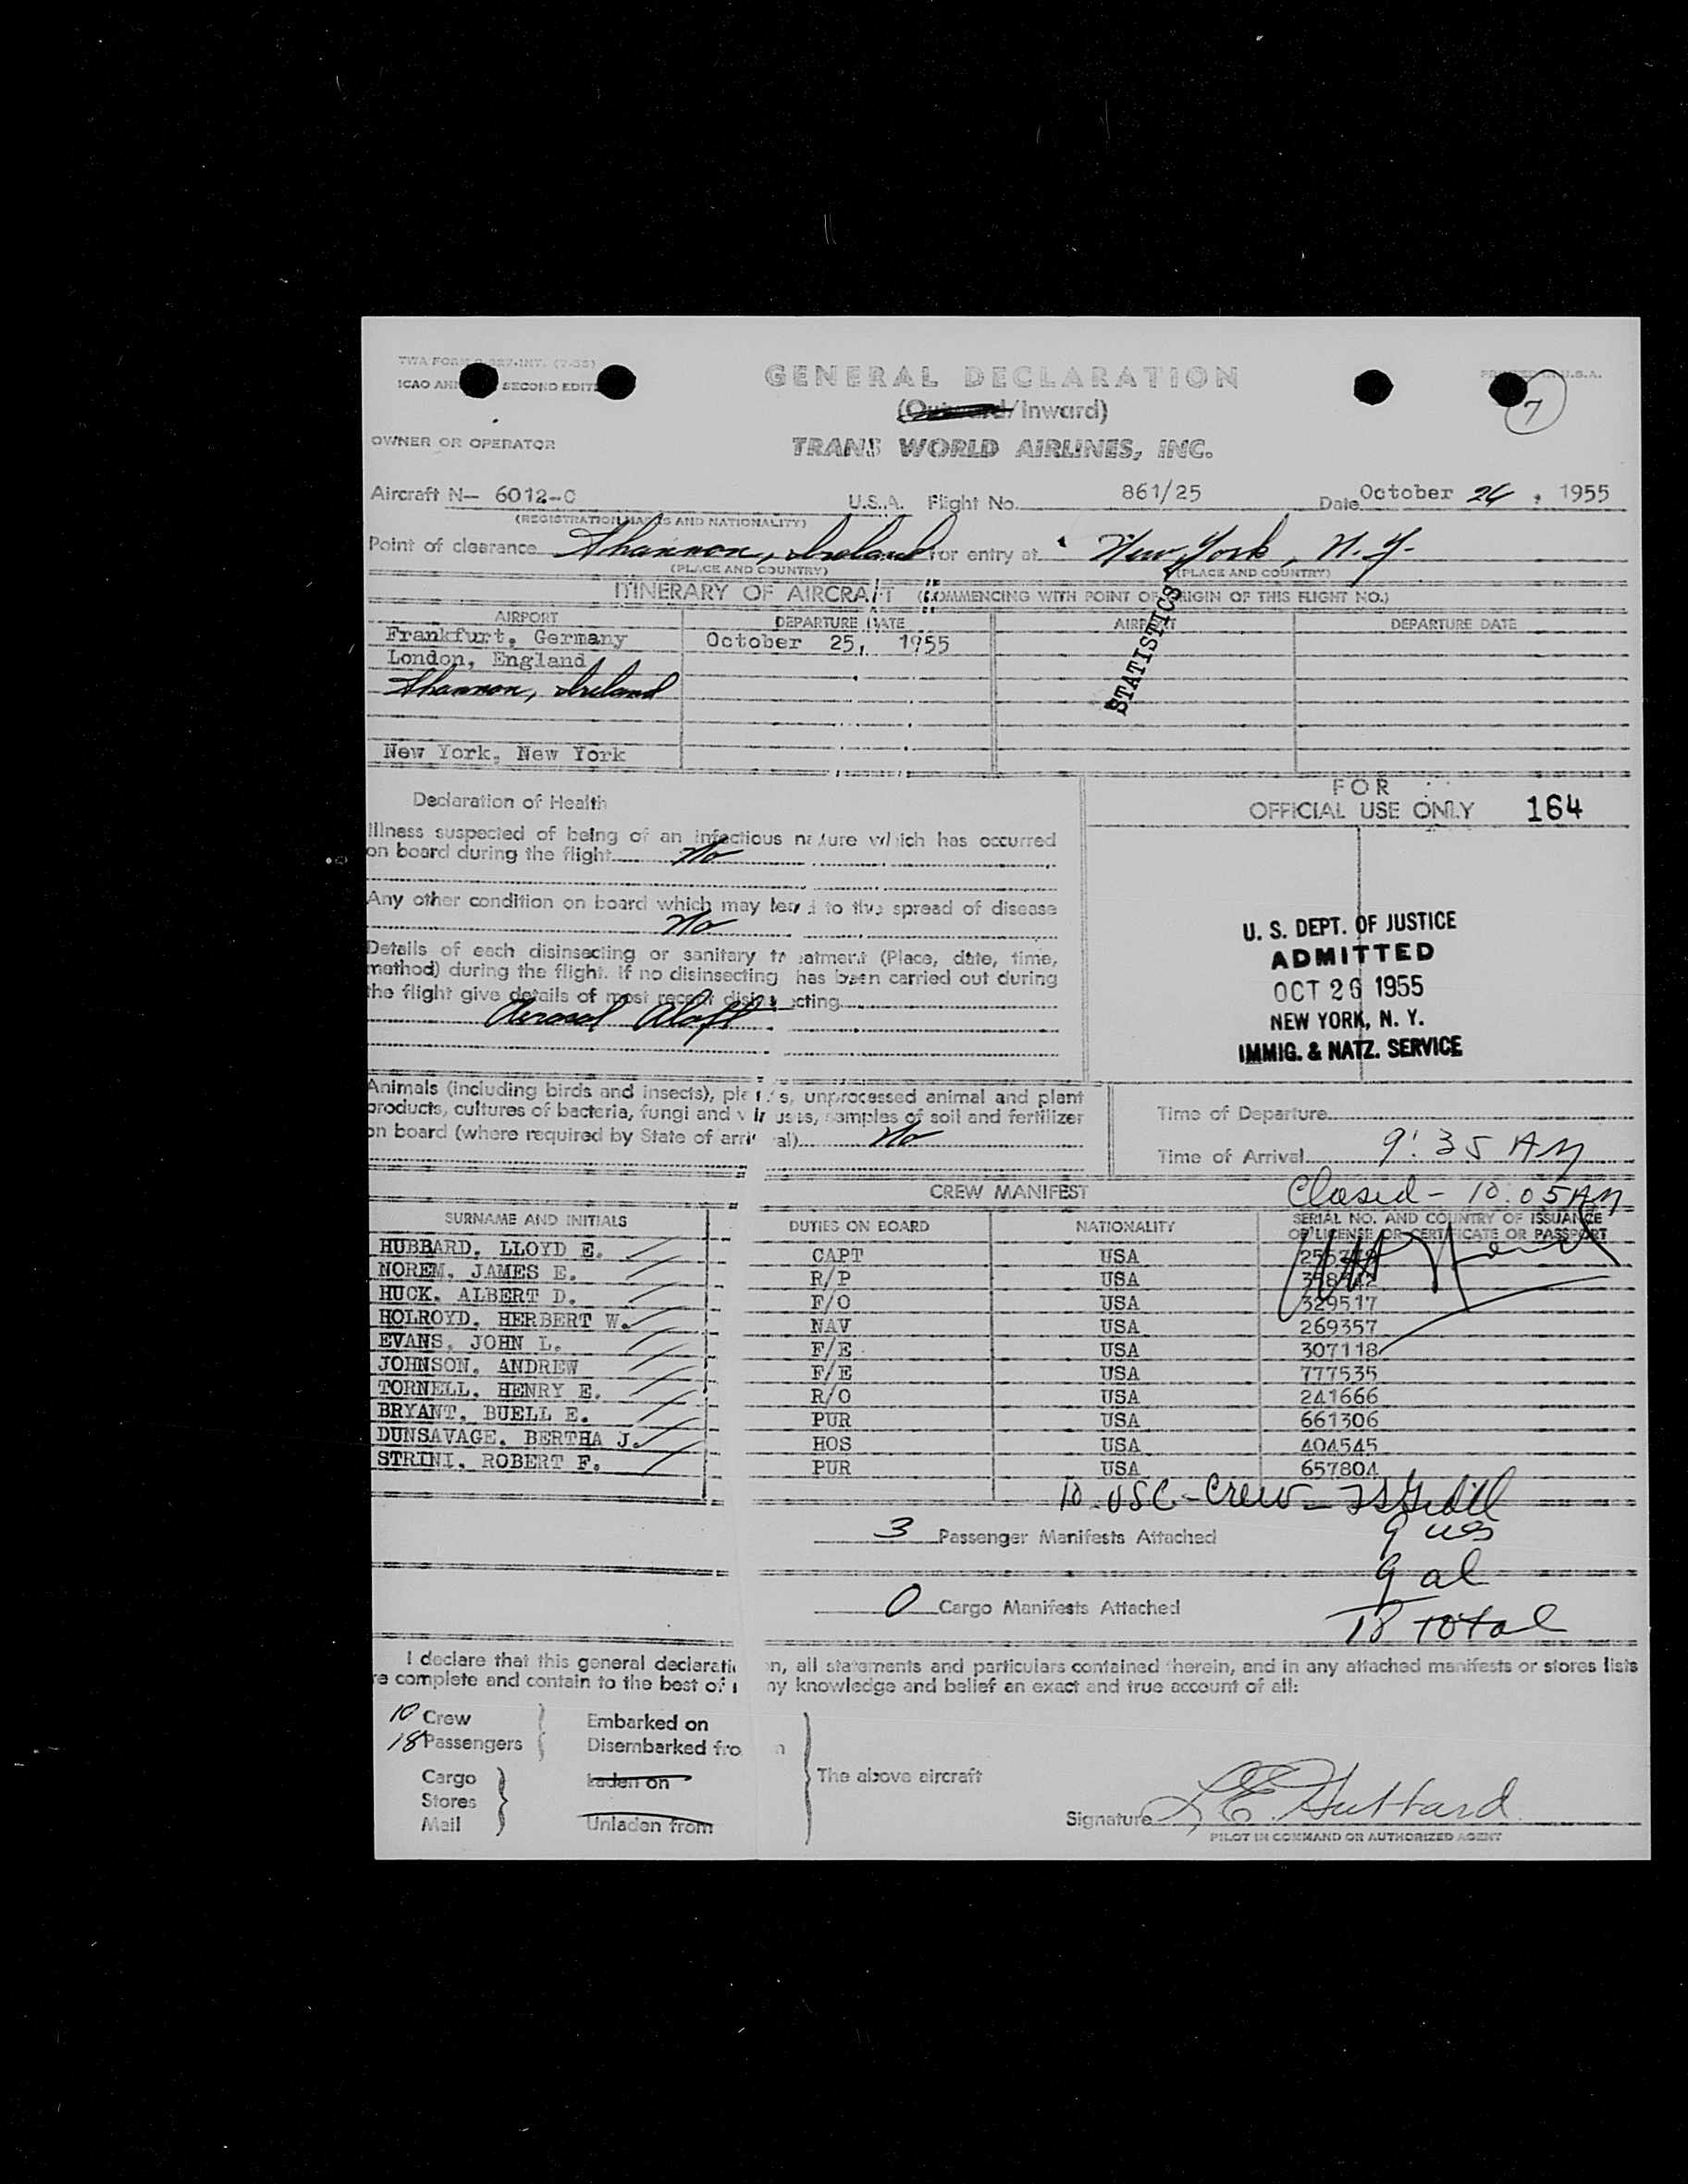 TWA FORM
ICAO AN SECOND EDIT
GENERAL DECLARATION
7
(Outward/Inward)
OWNER OR OPERATOR
TRANS WORLD AIRLINES, INC.
Aircraft N— 6012-C U.S.A. Flight No. 861/25 Date October 26, 1955
(REGISTRATION MARKS AND NATIONALITY)
Point of clearance Shannon, Ireland for entry at New York, N.Y.
(PLACE AND COUNTRY) (PLACE AND COUNTRY)
ITINERARY OF AIRCRAFT (COMMENCING WITH POINT OF ORIGIN OF THIS FLIGHT NO.)
AIRPORT DEPARTURE DATE AIRPORT DEPARTURE DATE
Frankfurt, Germany October 25, 1955
London, England
Shannon, Ireland
STATISTICS
New York, New York
Declaration of Health
FOR
OFFICIAL USE ONLY 164
Illness suspected of being of an infectious nature which has occurred
on board during the flight No
Any other condition on board which may lead to the spread of disease
No
Details of each disinsecting or sanitary treatment (Place, date, time,
method) during the flight. If no disinsecting has been carried out during
the flight give details of most recent disinsecting
Aerosol Aloft
U. S. DEPT. OF JUSTICE
ADMITTED
OCT 26 1955
NEW YORK, N. Y.
IMMIG. & NATZ. SERVICE
Animals (including birds and insects), plants, unprocessed animal and plant
products, cultures of bacteria, fungi and viruses, samples of soil and fertilizer
on board (where required by State of arrival) No
Time of Departure
Time of Arrival 9:35 AM
CREW MANIFEST
Closed - 10:05 AM
SURNAME AND INITIALS DUTIES ON BOARD NATIONALITY SERIAL NO. AND COUNTRY OF ISSUANCE
OF LICENSE OR CERTIFICATE OR PASSPORT
HUBBARD, LLOYD E. CAPT USA
NOREM, JAMES E. R/P USA
HUCK, ALBERT D. F/O USA 329517
HOLROYD, HERBERT W. NAV USA 269357
EVANS, JOHN L. F/E USA 307118
JOHNSON, ANDREW F/E USA 777535
TORNELL, HENRY E. R/O USA 241666
BRYANT, BUELL E. PUR USA 661306
DUNSAVAGE, BERTHA J. HOS USA 404545
STRINI, ROBERT F. PUR USA 657804
10 USC - Crew -
3 Passenger Manifests Attached
9 uss
9 al
0 Cargo Manifests Attached
18 total
I declare that this general declaration, all statements and particulars contained therein, and in any attached manifests or stores lists
re complete and contain to the best of my knowledge and belief an exact and true account of all:
10 Crew Embarked on
18 Passengers Disembarked from
Cargo Laden on The above aircraft
Stores
Mail Unladen from
Signature L E Hubbard
PILOT IN COMMAND OR AUTHORIZED AGENT